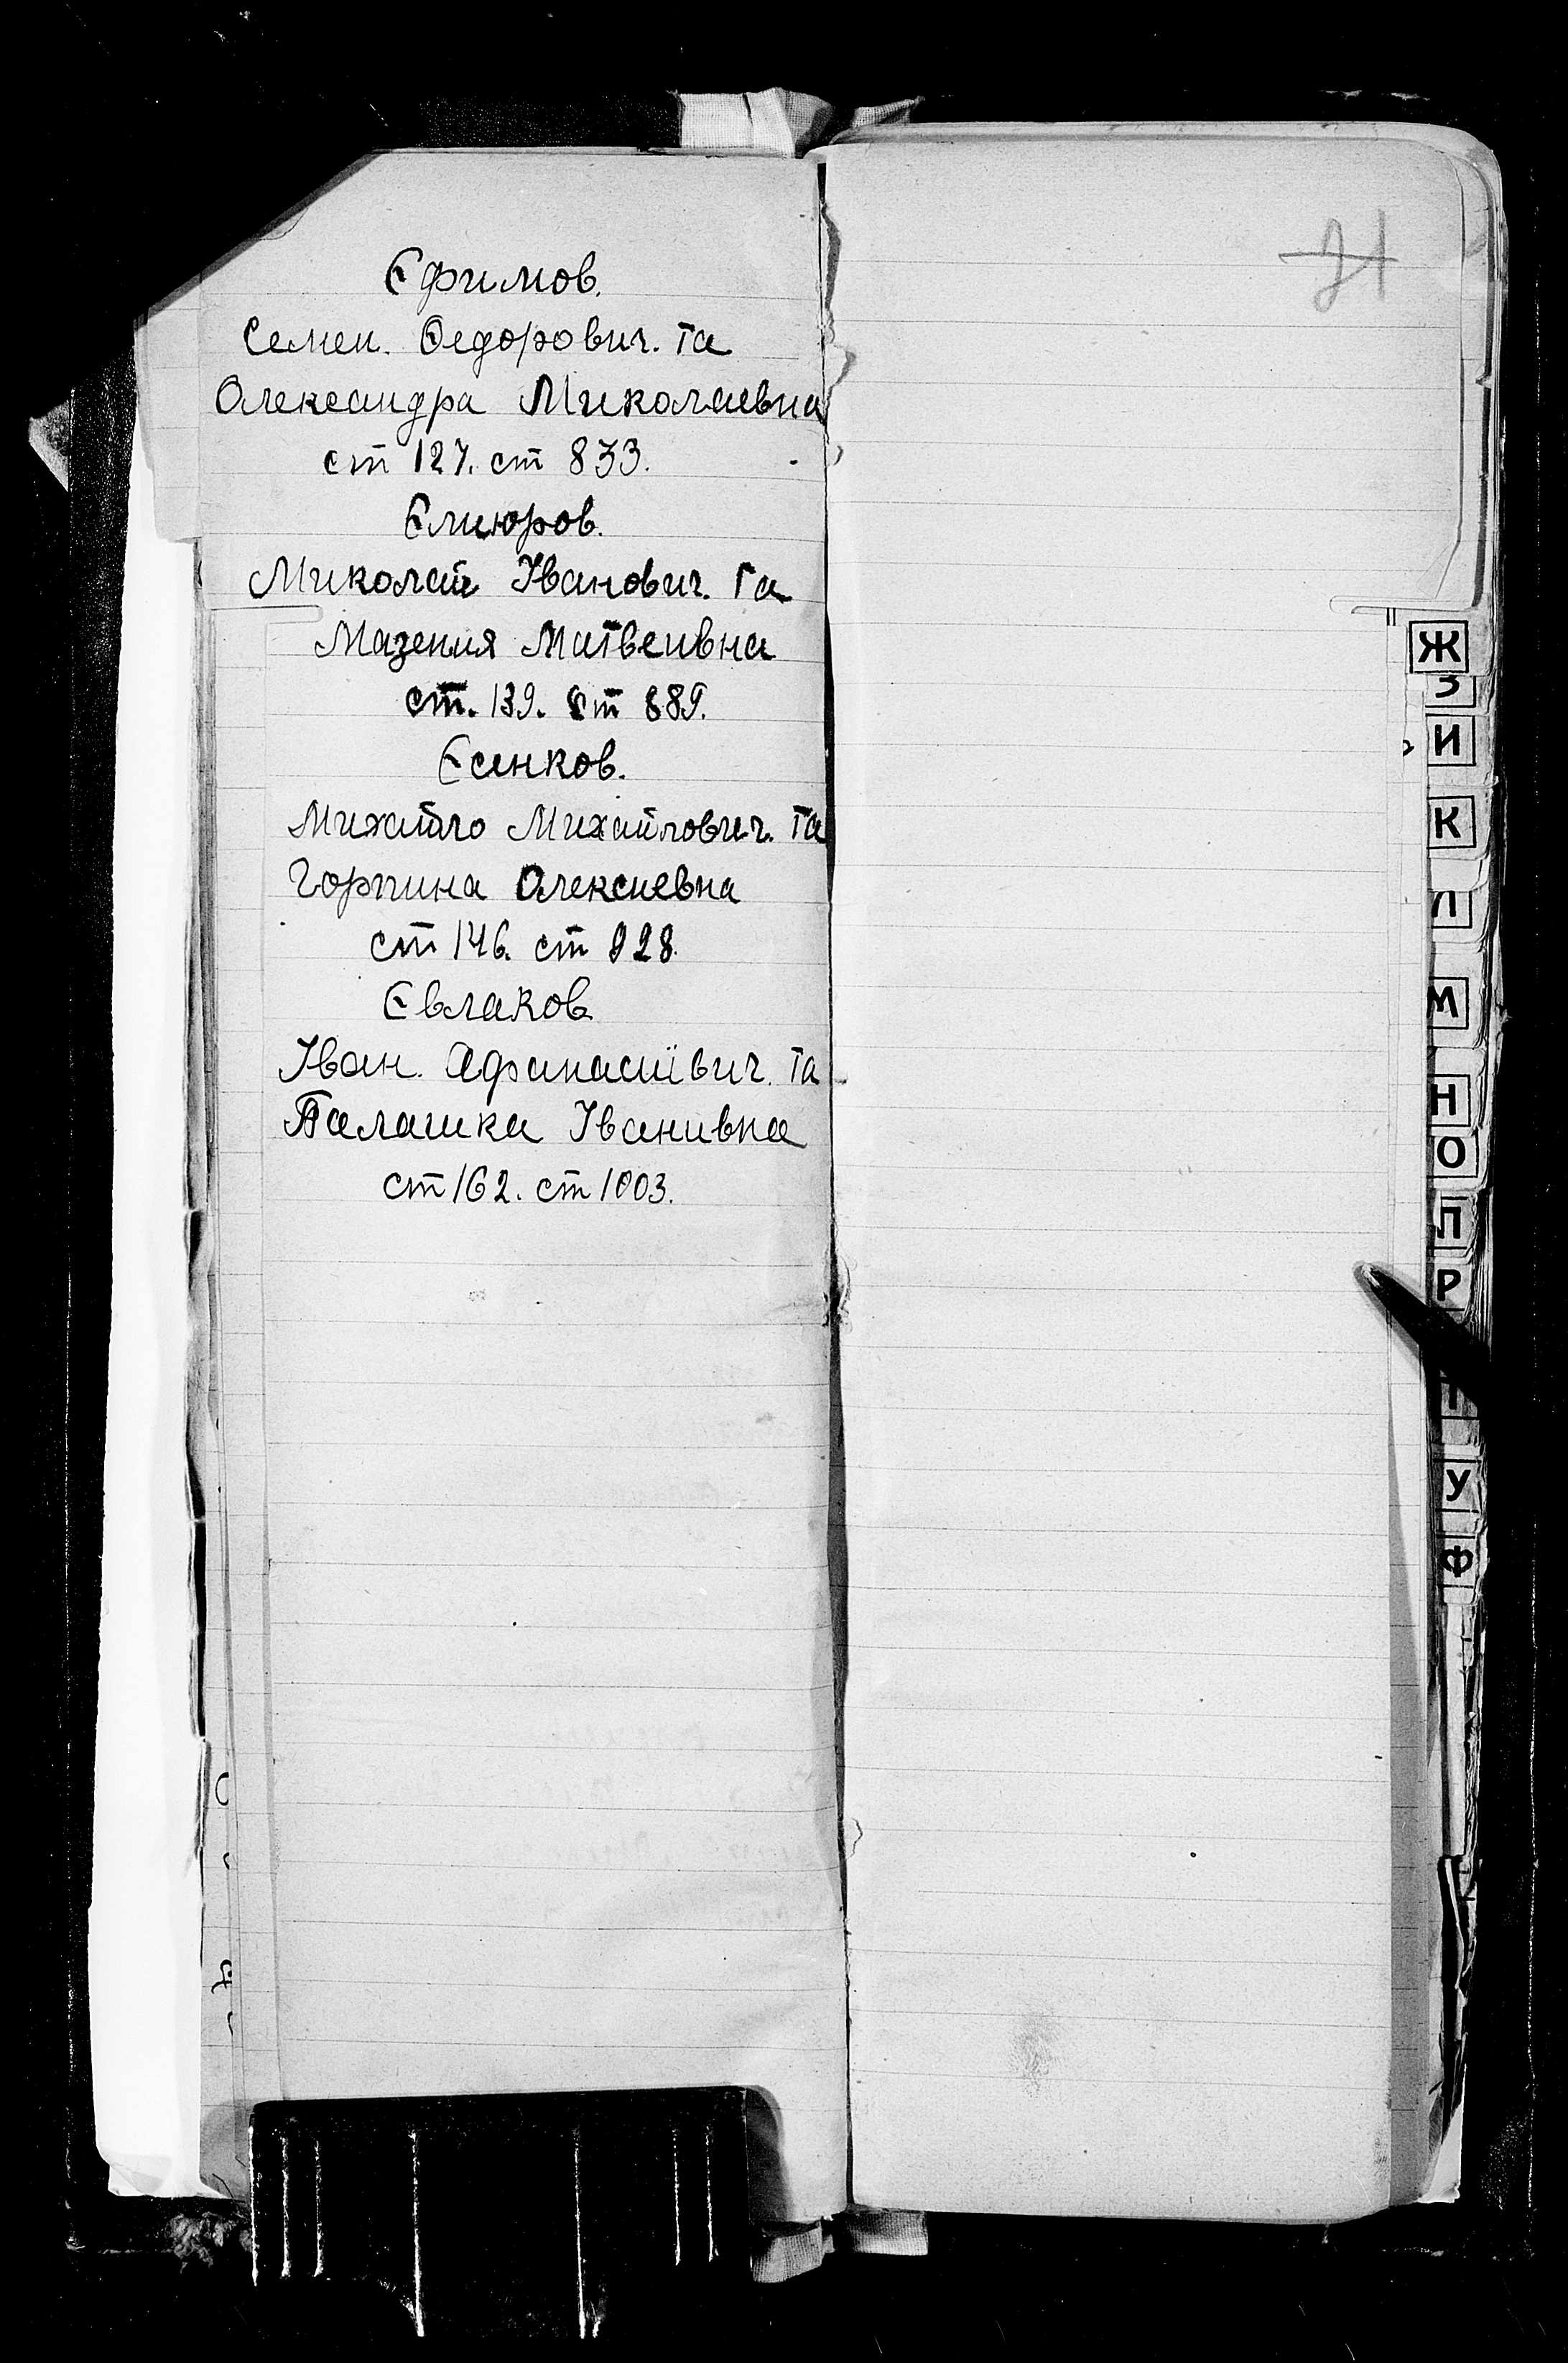 Єфимов.
Семен. Федорович. та
Олександра Миколаевна
ст 127. ст 833.
Єлиюров.
Миколай Іванович. та
Мазения Матвеивна
ст. 139. ст 889.
Єсенков.
Михайло Михайлович. та
Горпина Олексиевна
ст 146. ст 928.
Євлаков
Іван. Афанасиївич. та
Палашка Іванивна
ст 162. ст 1003.
21
Ж
З
И
К
Л
М
Н
О
П
Р
Т
У
Ф